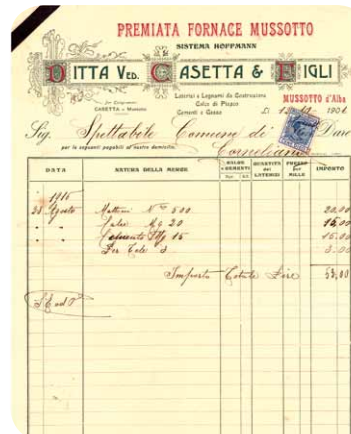 PREMIATA FORNACE MUSSOTTO
SISTEMA HOFFMANN
DITTA VED. CASETTA & FIGLI
Laterizi e Legnami da Costruzione
Calce di Piasco
Cementi e Gesso
MUSSOTTO d'Alba
CASETTA - Mussotto
Lì 190
Sig. Spettabile Comune di Dare
Corneliano
per le seguenti pagabili al nostro domicilio.
DATA NATURA DELLA MERCE CALCE e CEMENTI QUANTITÀ dei LATERIZI PREZZO per MILLE IMPORTO
1915
28 Agosto Mattoni N° 500 20,00
" " Calce Mg 20 15,00
" " Cemento Mg 15 15.00
" " Per Tele 3 3.00
Importo Totale Lire 53,00